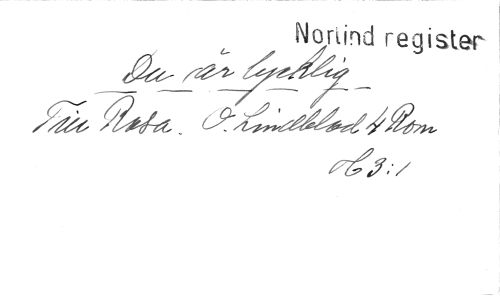 Norlind register
Du är lycklig
Till Rosa. O. Lindblad 4 Rom
H 3:1